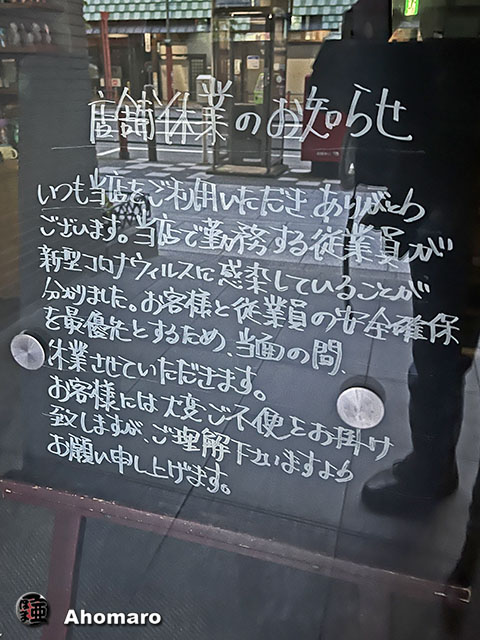 店舗休業のお知らせ
いつも当店をご利用いただきありがとう
ございます。当店で勤務する従業員が
新型コロナウィルスに感染していることが
分かりました。お客様と従業員の安全確保
を最優先とするため、当面の間、
休業させていただきます。
お客様には大変ご不便をお掛け
致しますが、ご理解下さいますよう
お願い申し上げます。
Ahomaro